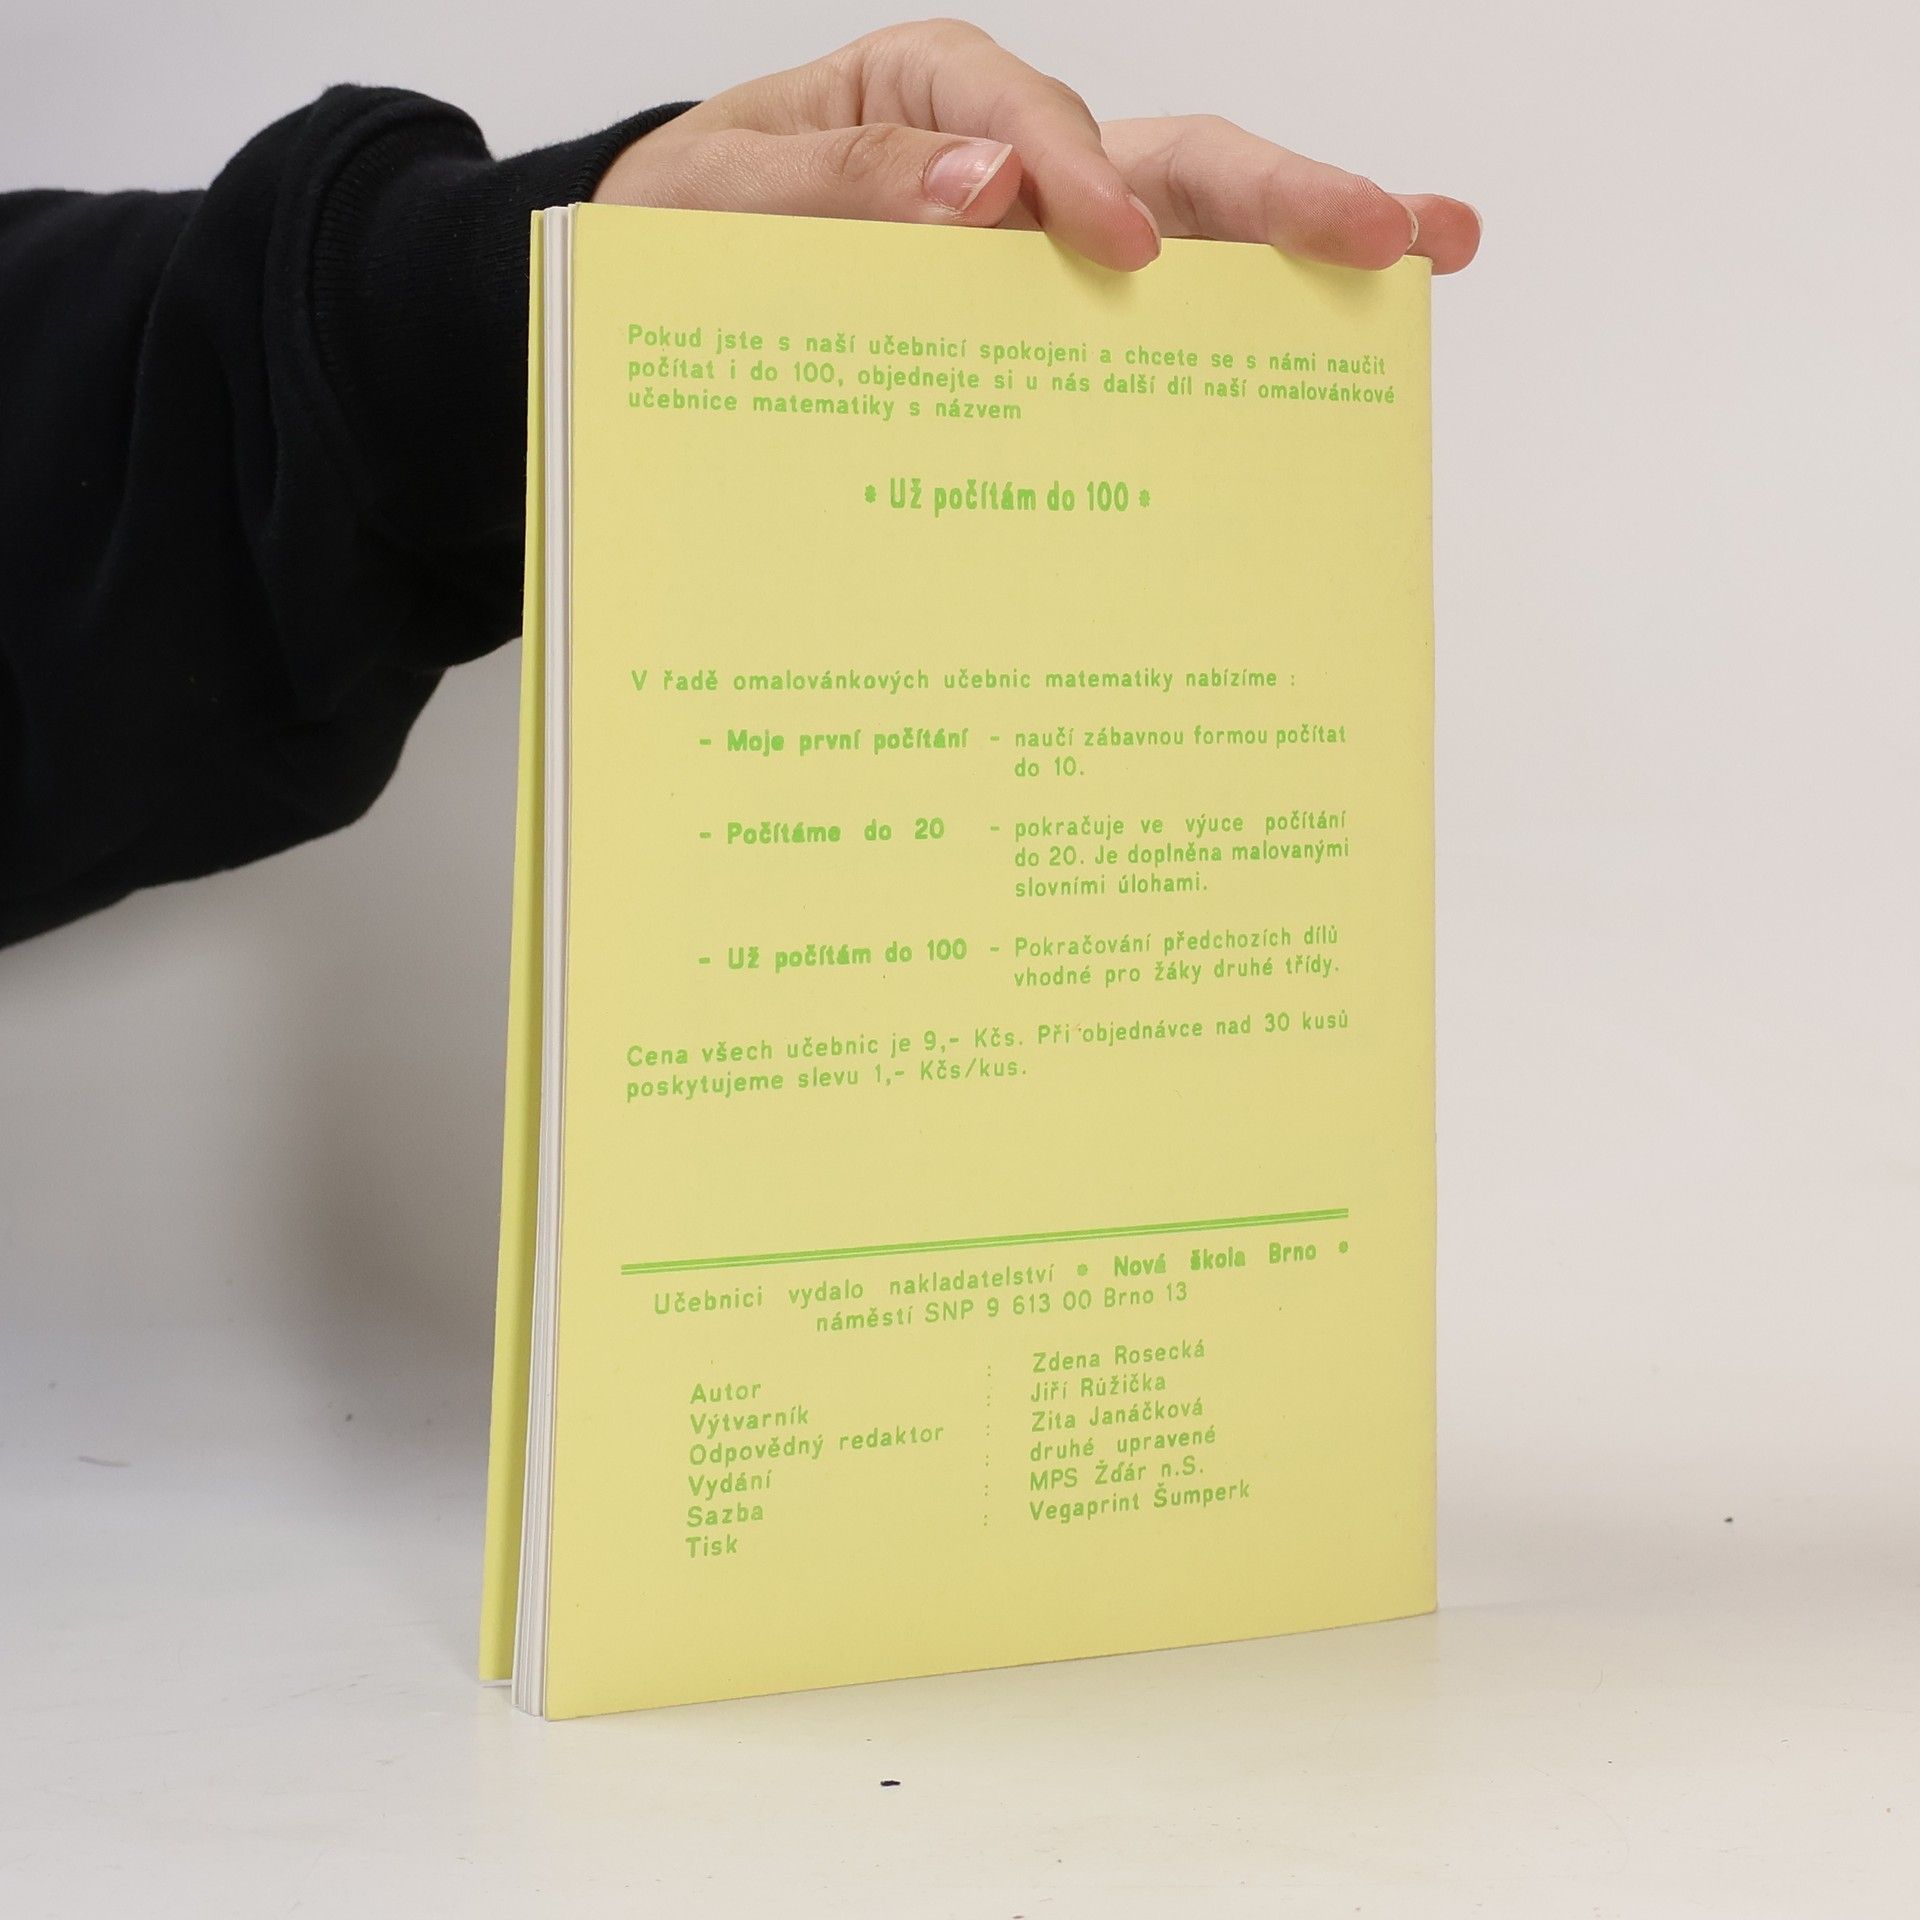 Pokud jste s naší učebnicí spokojeni a chcete se s námi naučit
počítat i do 100, objednejte si u nás další díl naší omalovánkové
učebnice matematiky s názvem
* Už počítám do 100 *
V řadě omalovánkových učebnic matematiky nabízíme :
- Moje první počítání - naučí zábavnou formou počítat
do 10.
- Počítáme do 20 - pokračuje ve výuce počítání
do 20. Je doplněna malovanými
slovními úlohami.
- Už počítám do 100 - Pokračování předchozích dílů
vhodné pro žáky druhé třídy.
Cena všech učebnic je 9,- Kčs. Při objednávce nad 30 kusů
poskytujeme slevu 1,- Kčs/kus.
Učebnici vydalo nakladatelství * Nová škola Brno *
náměstí SNP 9 613 00 Brno 13
Autor : Zdena Rosecká
Výtvarník : Jiří Růžička
Odpovědný redaktor : Zita Janáčková
Vydání : druhé upravené
Sazba : MPS Žďár n.S.
Tisk : Vegaprint Šumperk